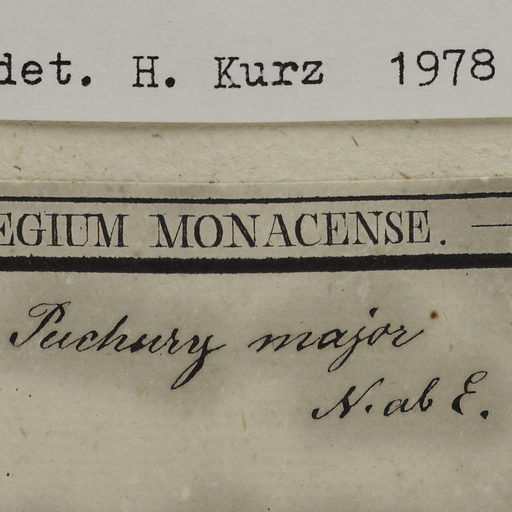 det. H. Kurz 1978
EGIUM MONACENSE. —
Puchury major
N. ab E.